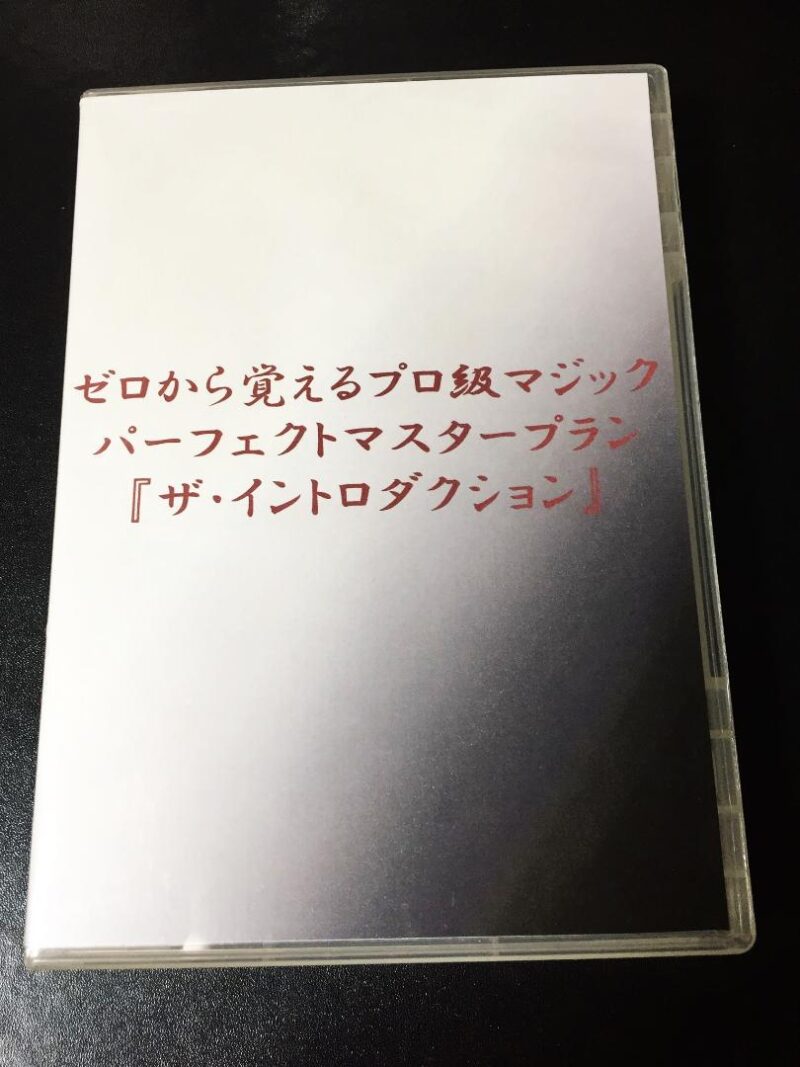 ゼロから覚えるプロ級マジック
パーフェクトマスタープラン
『ザ・イントロダクション』